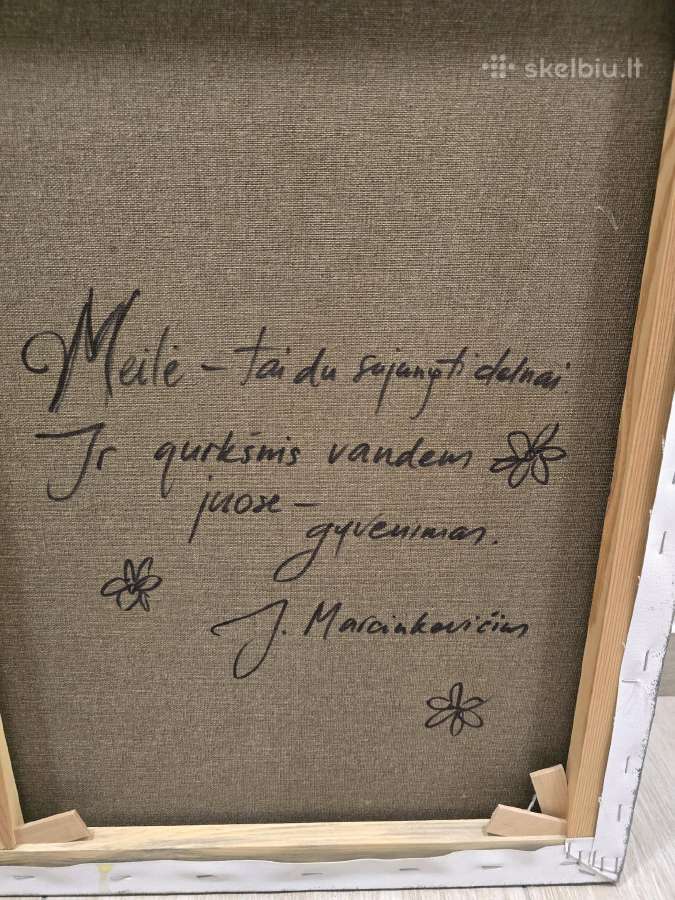 skelbiu.lt
Meilė – tai du sujungti delnai.
Ir gurkšnis vandens
juose –
gyvenimas.
J. Marcinkevičius